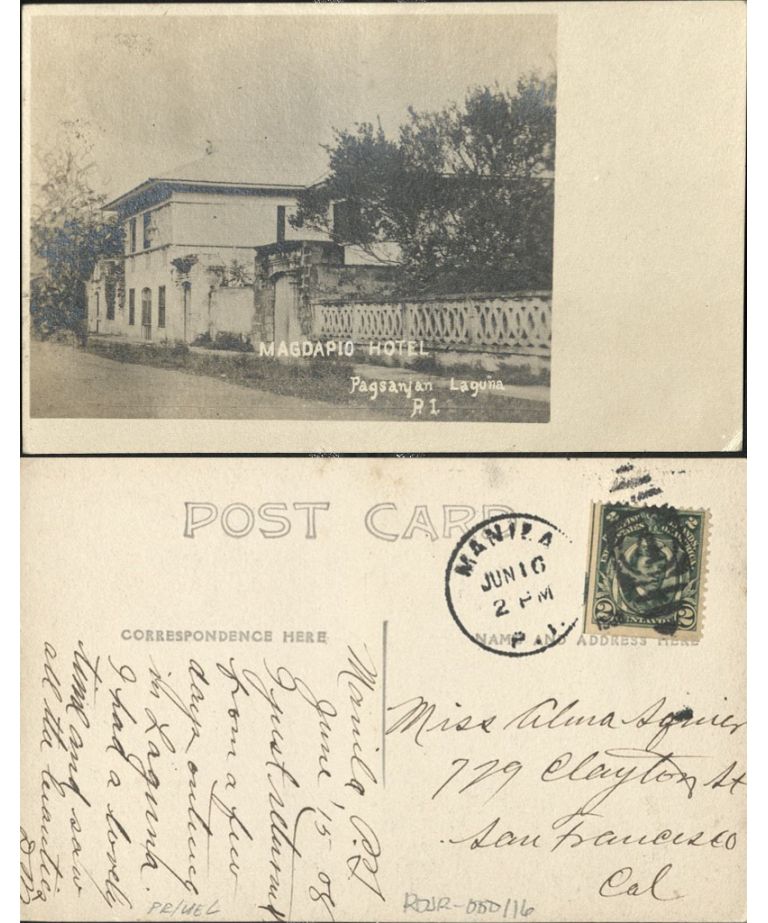 MAGDAPIO HOTEL
Pagsanjan Laguna
P.I.
POST CARD
CORRESPONDENCE HERE
NAME AND ADDRESS HERE
MANILA
JUN 16
2 PM
P. I.
2 2
Manila P.I
June, 15 08
I just returned
from a few
days outing
in Laguna.
I had a lovely
time and saw
all the beauties
Miss Alma
729 Clayton St
San Francisco
Cal
PR/UEL